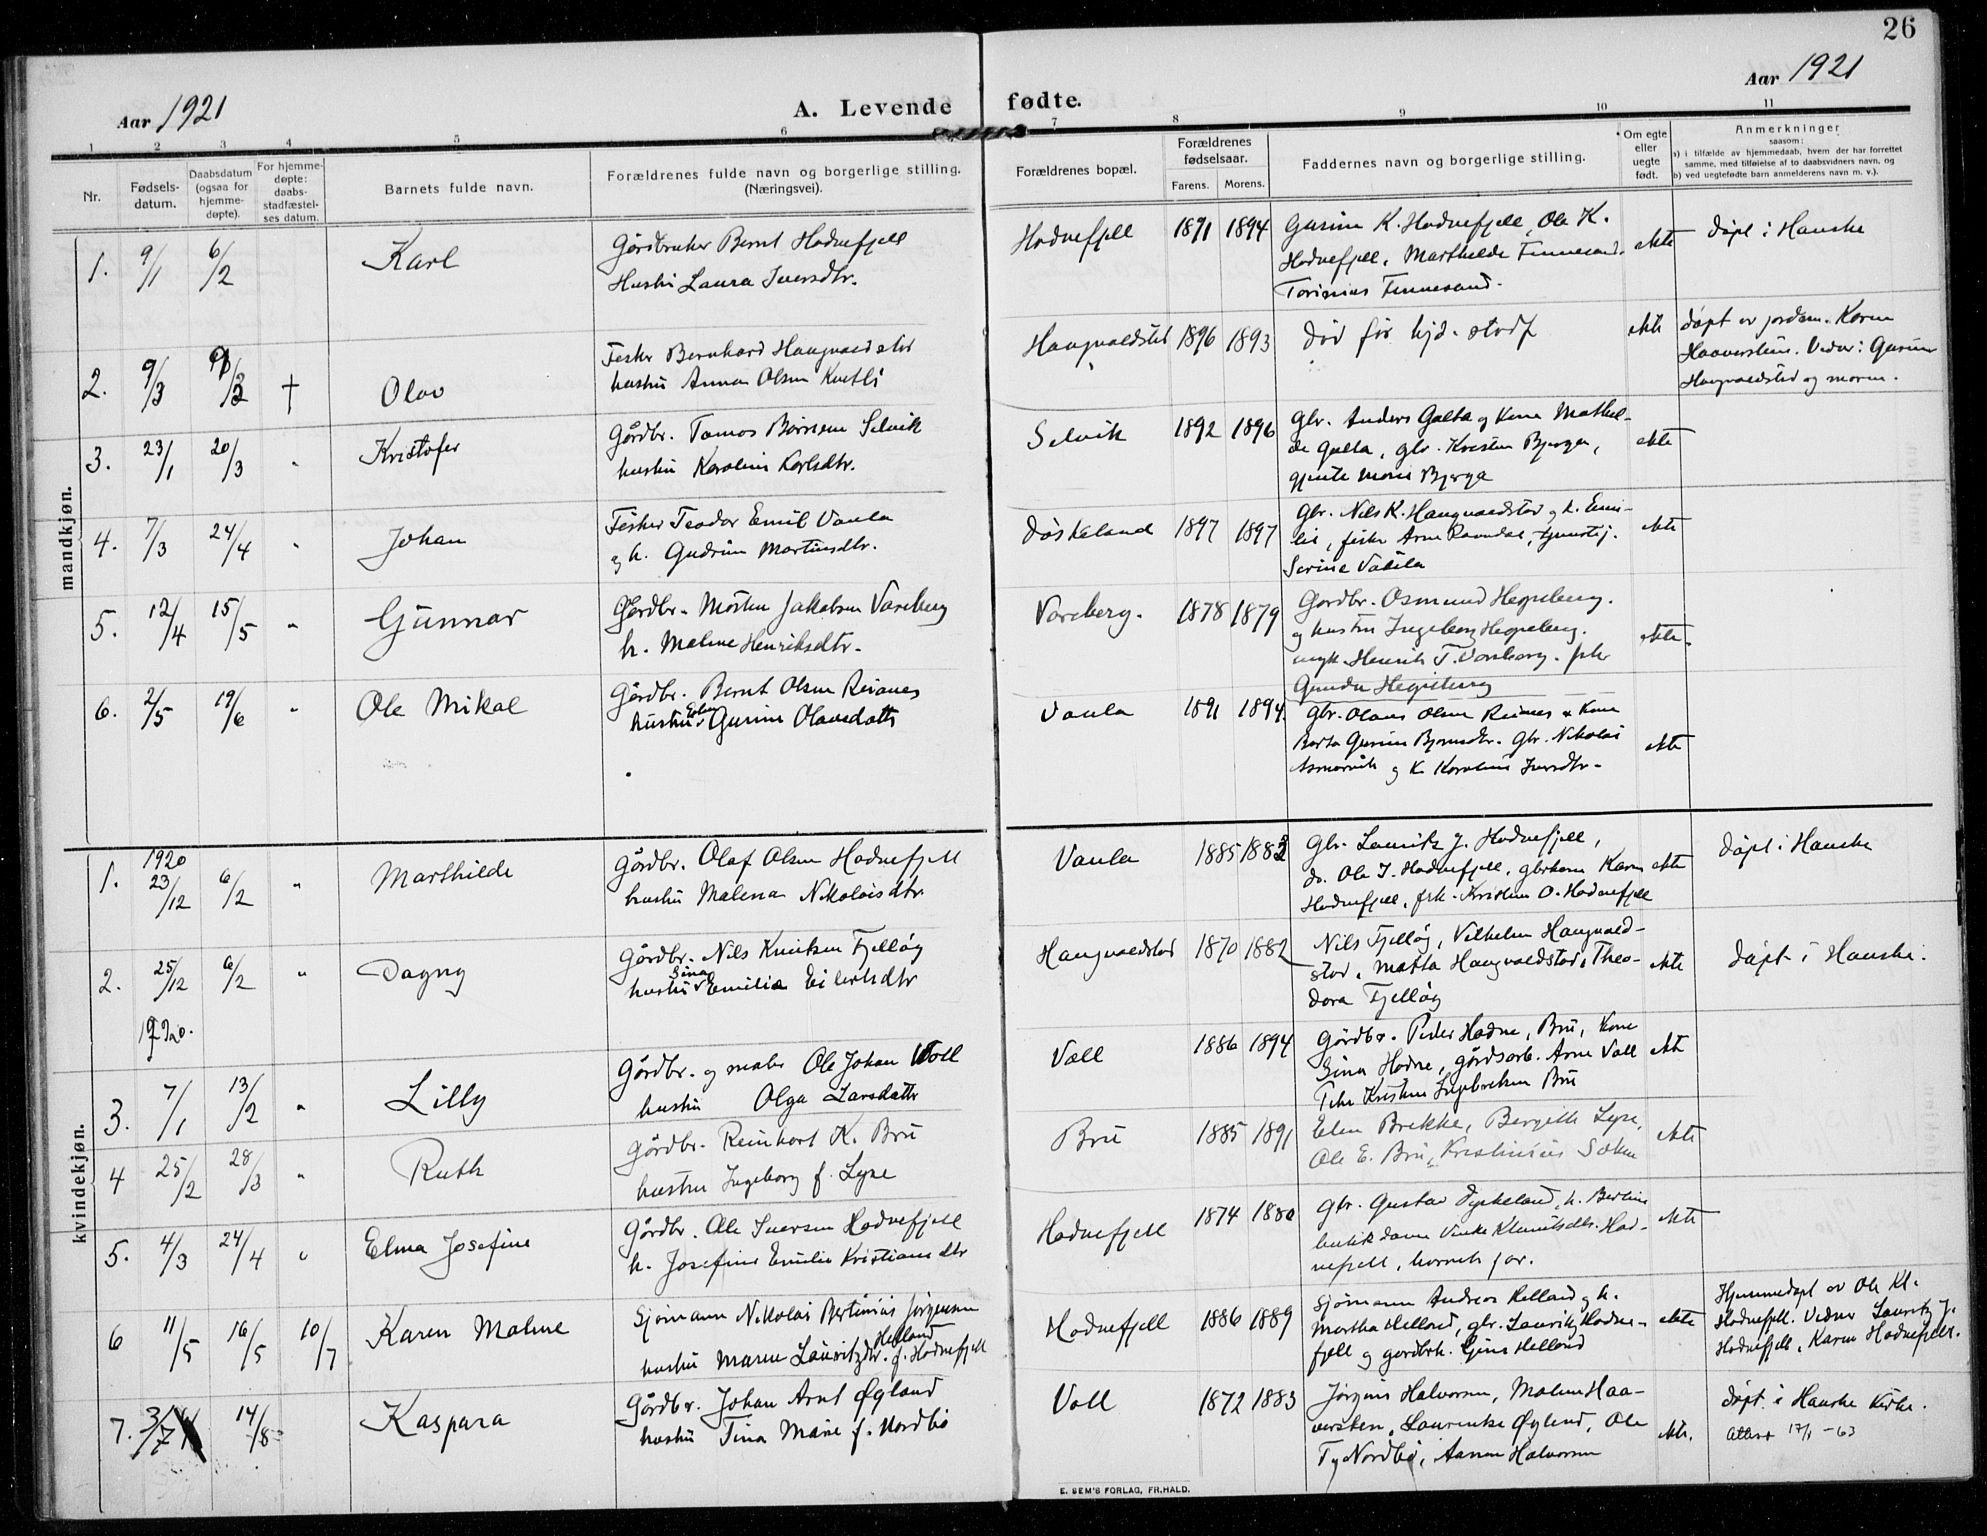 26
Aar 1921
A. Levende fødte.
Aar 1921
1 2 3 4 5 6 7 8 9 10 11
Nr.
Fødsels-
datum.
Daabsdatum
(ogsaa for
hjemme-
døpte).
For hjemme-
døpte:
daabs-
stadfæstel-
ses datum.
Barnets fulde navn.
Forældrenes fulde navn og borgerlige stilling.
(Næringsvei).
Forældrenes bopæl.
Forældrenes
fødselsaar.
Farens. Morens.
Faddernes navn og borgerlige stilling.
Om egte
eller
uegte
født.
Anmerkninger
saasom:
a) i tilfælde av hjemmedaab, hvem der har forrettet
samme, med tilføielse af to daabsvidners navn, og
b) ved uegtefødte barn anmelderens navn m. v.).
mandkjøn.
1. 9/1 6/2 Karl
Gårdbruker Bernt Hodnefjell
Hustru Laura Iversdtr.
Hodnefjell 1891 1894
Gurine K. Hodnefjell, Ole K.
Hodnefjell, Marthilde Finnesand.
Torinius Finnesand.
ekte
døpt i Hauske
2. 9/3 9/3 † Olav
Fisker Bernhard Haugvaldstad
hustru Anna Olsen
Haugvaldstad 1896 1893
død før hjd. stadf
ekte
døpt av jordm. Karen
Haaverstein. Vidner: Gurine
Haugvaldstad og moren.
3. 23/1 20/3 " Kristofer
Gårdbr. Tomas Selvik
hustru Karoline Karlsdtr.
Selvik 1892 1896
Gbr. Anders Galta og kone Mathil-
de Galta, gbr. Kristen Bjerga,
gjente Marie Bjerga
ekte
4. 7/3 24/4 " Johan
Fisker Teodor Emil Vaula
og h. Gudrun Martinsdtr.
Døskeland 1897 1897
Gbr. Nils K. Haugvaldstad og h. Emi-
lie, fisker Arne
Serine Vaula
ekte
5. 12/4 15/5 " Gunnar
Gårdbr. Mosten Jakobsen Vareberg
h. Malene Henriksdtr.
Vareberg. 1878 1879
Gårdbr. Osmund
og hustru Ingeborg
ungk. Henrik T. Vareberg. frk
ekte
6. 2/5 19/6 " Ole Mikal
Gårdbr. Bernt Olsen Reianes
hustru Gurine Olavsdatter
Vaula 1891 1894
Gbr. Olaus Olsen Reianes & kone
Berta Gurine Bjørnsdtr. Gbr. Nikolai
Asmarvik og k. Karoline Iversdtr.
ekte
kvindekjøn.
1. 1920 23/12 6/2 " Marthilde
Gårdbr. Olaf Olsen Hodnefjell
hustru Malena Nikolaisdtr.
Vaula 1885 1883
Gbr. Lauritz J. Hodnefjell,
do. Ole I. Hodnefjell, gbrkone Karen
Hodnefjell, frk. Kristine O. Hodnefjell
ekte
døpt i Hauske
2. 25/12 1920. 6/2 " Dagny
Gårdbr. Nils Knutsen Fjelløy
hustru Sina Emilie Eilertsdtr
Haugvaldstad 1870 1882
Nils Fjelløy, Vilhelm Haugvald-
stad, Matta Haugvaldstad, Theo-
dora Fjelløy
ekte
døpt i Hauske.
3. 7/1 13/2 " Lilly
Gårdbr. og maler Ole Johan Voll
hustru Olga Larsdatter
Voll 1886 1894
Gårdbr. Peder Hodne, Bru, kone
Sina Hodne, gårdsarb. Arne Voll
Pike Kristine Ingebretsen Bru
ekte
4 25/2 28/3 " Ruth
Gårdbr. Reinhart K. Bru
hustru Ingeborg f. Lyse
Bru 1885 1891
Elen Brekke, Bergitte Lyse,
Ole E. Bru, Kristinius
ekte
5. 4/3 24/4 " Elma Josefine
Gårdbr. Ole Iversen Hodnefjell
h. Josefine Emilie Kristiansdtr
Hodnefjell 1874 1880
Gbr. Gustav Dyskeland, h. Bertine
butikdame Vinke Knutsdtr. Hod-
nefjell,
ekte
6 11/5 16/5 10/7 Karen Malene
Sjømann Nikolai Bertinius Jørgensen Helland
hustru Maren Lauritzdtr. f. Hodnefjell
Hodnefjell 1886 1889
Sjømann Andreas Helland og h.
Martha Helland, gbr. Lauritz Hodne-
fjell og gardbrk. Gina Helland
ekte
Hjemmedøpt av Ole Kl.
Hodnefjell. Vidner Lauritz J.
Hodnefjell, Karen Hodnefjell.
7. 3/7 14/8 Kaspara
Gårdbr. Johan Arnt Øgland
hustru Tina Marie f. Nordbø
Voll 1872 1883
Jørgine Halvorsen, Malene Haa-
verstein, Laurentse Øgland, Ole
Nordbø, Aanen Halvorsen
ekte.
døpt i Hauske kirke.
Attest 17/1 -63
E. SEM'S FORLAG, FR.HALD.